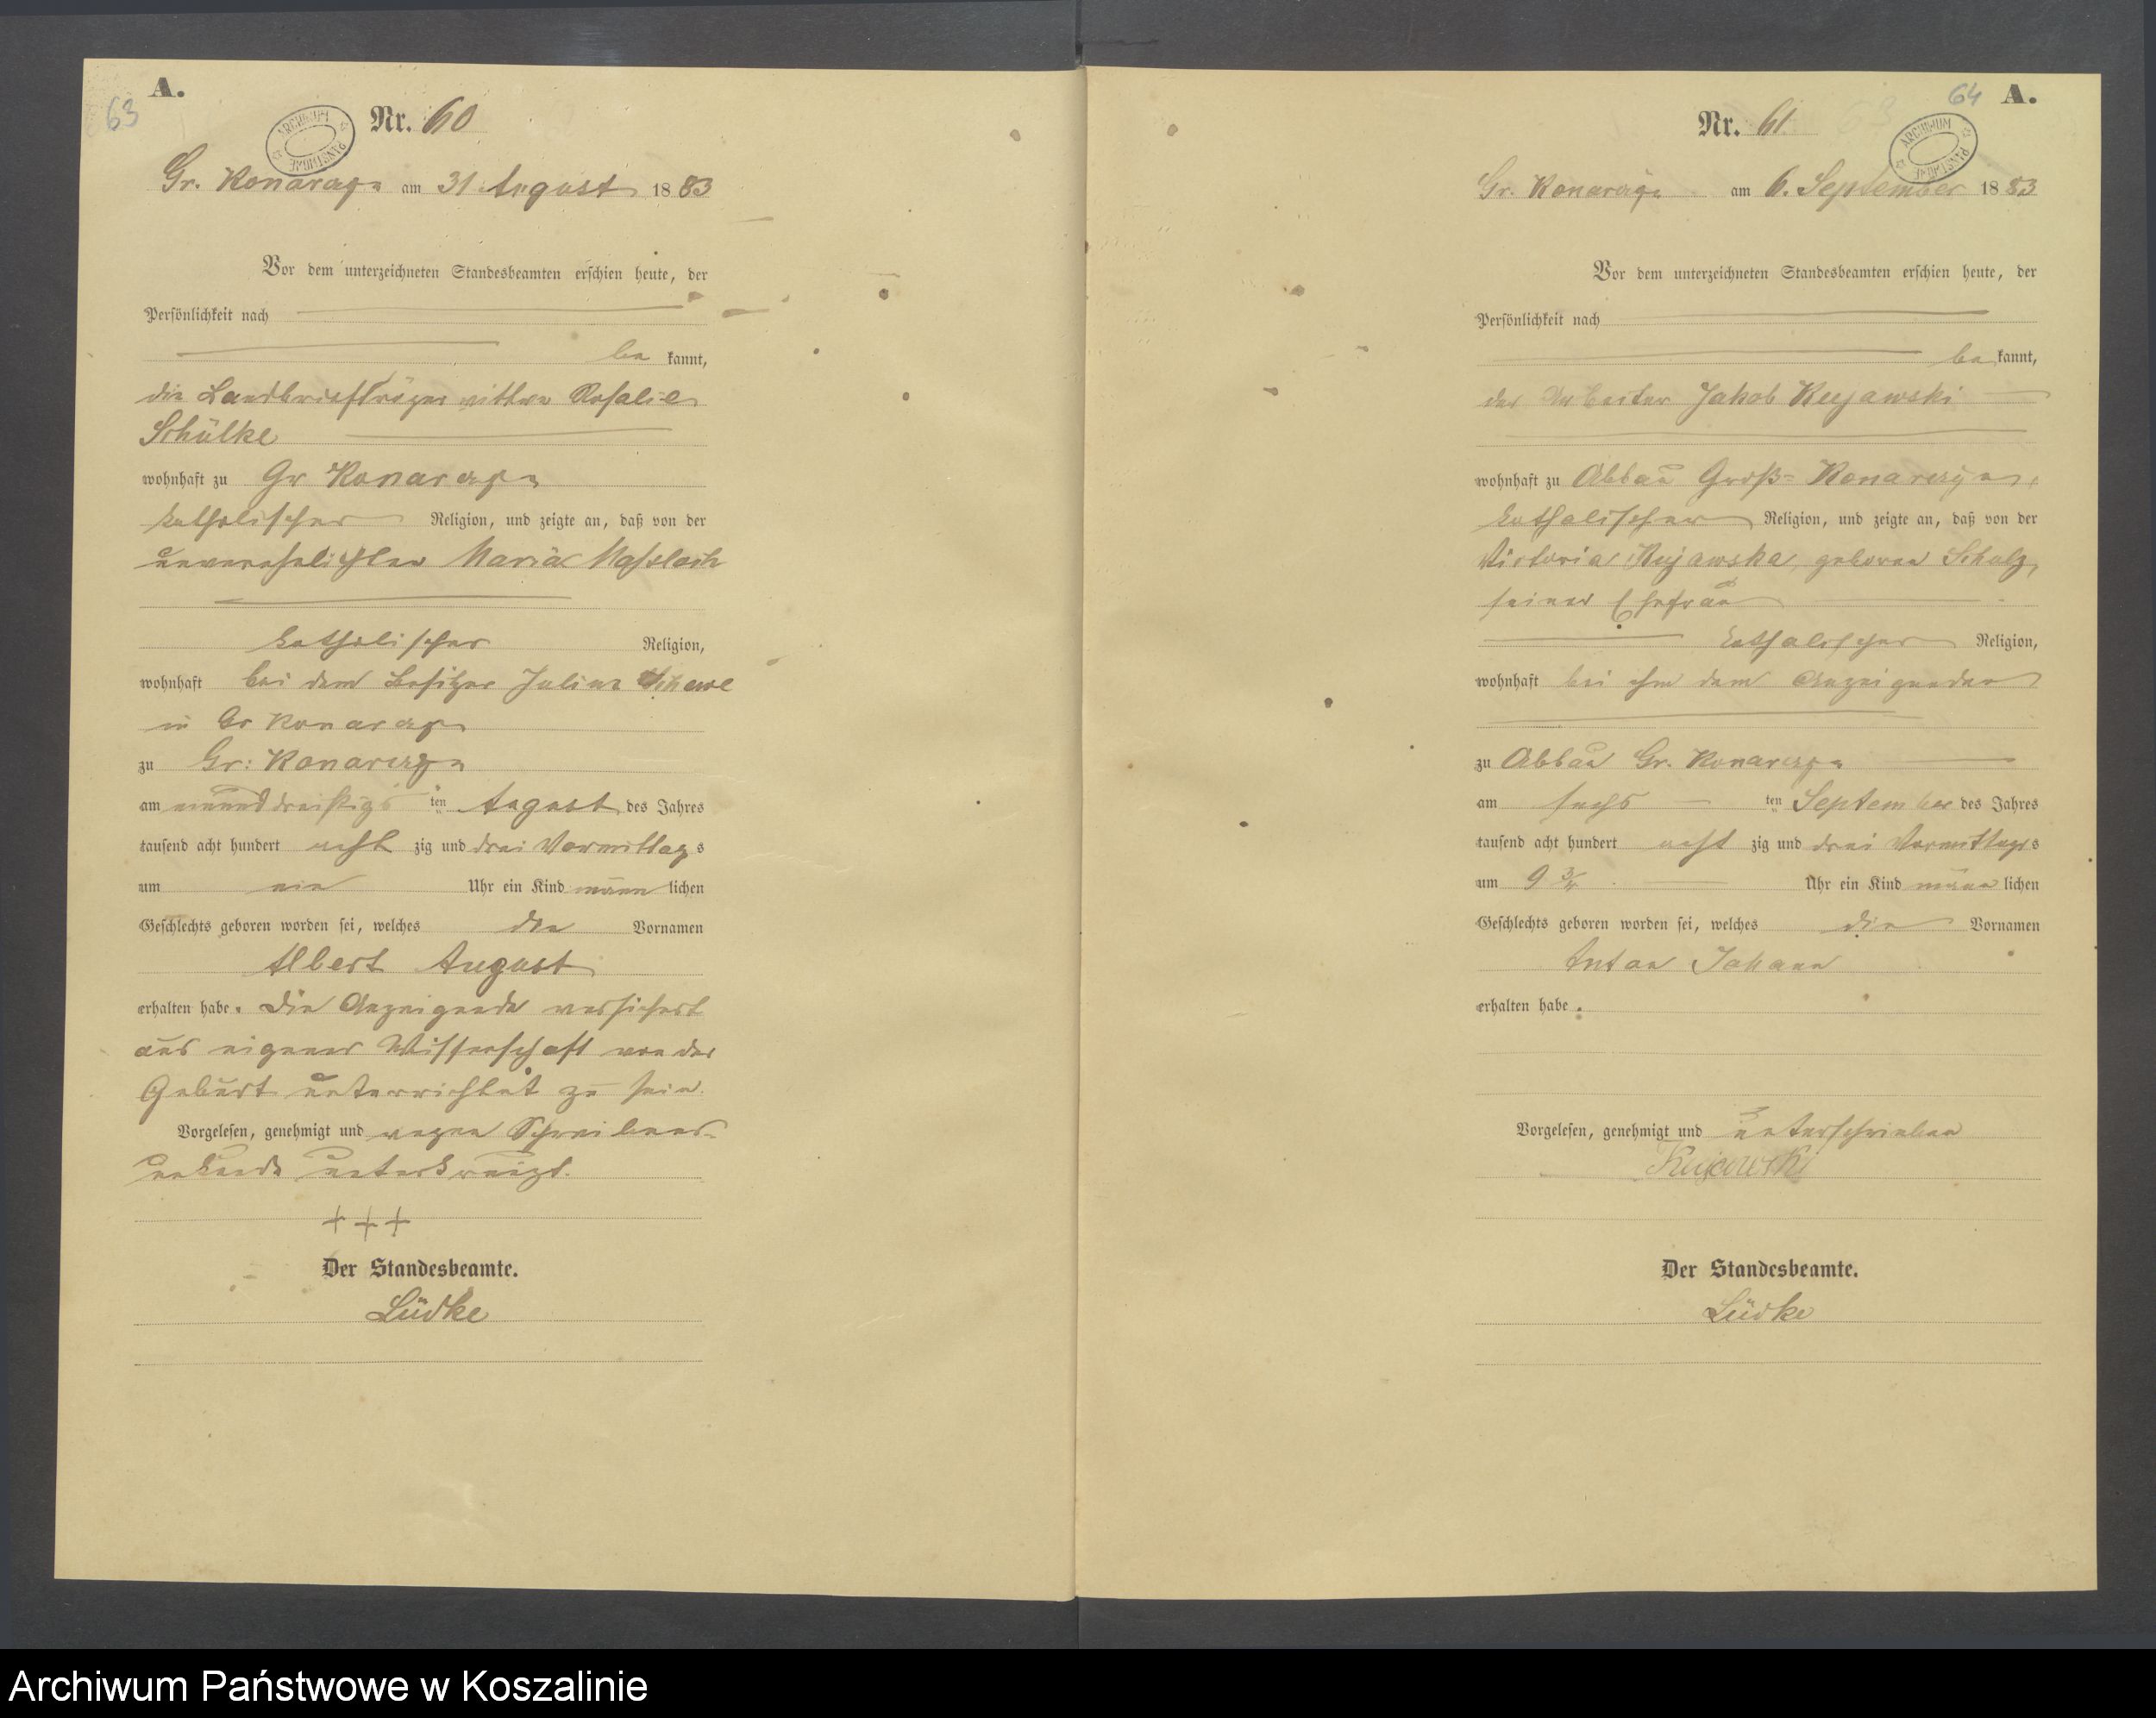 63
A.
Nr. 60
ARCHIWUM PAŃSTWOWE
Gr. Konarczyn am 31 August 1883
Vor dem unterzeichneten Standesbeamten erschien heute, der
Persönlichkeit nach
be kannt,
die Landbriefträger wittwe Rosalie
Schülke
wohnhaft zu Gr Konarczyn
katholischer Religion, und zeigte an, daß von der
unverehelichten Maria
katholischer Religion,
wohnhaft bei dem Besitzer Julius
in Gr Konarczyn
zu Gr: Konarczyn
am einunddreißigs ten August des Jahres
tausend acht hundert acht zig und drei Vormittags
um ein Uhr ein Kind männ lichen
Geschlechts geboren worden sei, welches die Vornamen
Albert August
erhalten habe. Die Anzeigende versichert
aus eigener Wissenschaft von der
Geburt unterrichtet zu sein.
Vorgelesen, genehmigt und wegen Schreibens-
unkunde unterkreuzt.
+++
Der Standesbeamte.
Lüdke
64
A.
Nr. 61
ARCHIWUM PAŃSTWOWE
Gr. Konarczyn am 6. September 1883
Vor dem unterzeichneten Standesbeamten erschien heute, der
Persönlichkeit nach
be kannt,
der Arbeiter Jakob Kujawski
wohnhaft zu Abbau Groß-Konarczyn,
katholischer Religion, und zeigte an, daß von der
Victoria Kujawska, geborene Schulz,
seiner Ehefrau
katholischer Religion,
wohnhaft bei ihm dem Anzeigenden
zu Abbau Gr. Konarczyn
am sechs ten September des Jahres
tausend acht hundert acht zig und drei Vormittags
um 9 3/4 Uhr ein Kind männ lichen
Geschlechts geboren worden sei, welches die Vornamen
Anton Johann
erhalten habe.
Vorgelesen, genehmigt und unterschrieben
Kujawski
Der Standesbeamte.
Lüdke
Archiwum Państwowe w Koszalinie